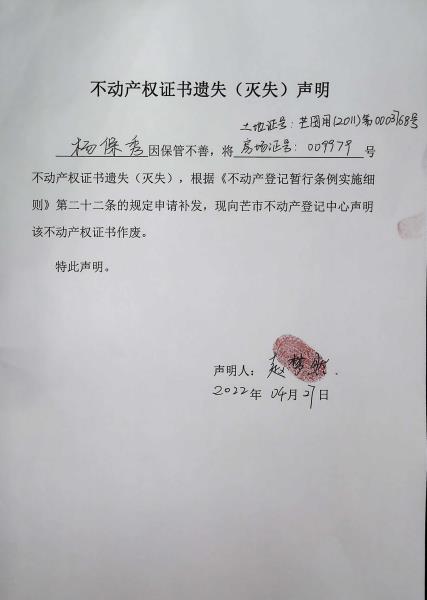 不动产权证书遗失（灭失）声明
土地证号：芒国用(2011)第0003768号
杨保秀因保管不善，将房场证号：009979号
不动产权证书遗失（灭失），根据《不动产登记暂行条例实施细
则》第二十二条的规定申请补发，现向芒市不动产登记中心声明
该不动产权证书作废。
特此声明。
声明人：赵
2022年04月27日